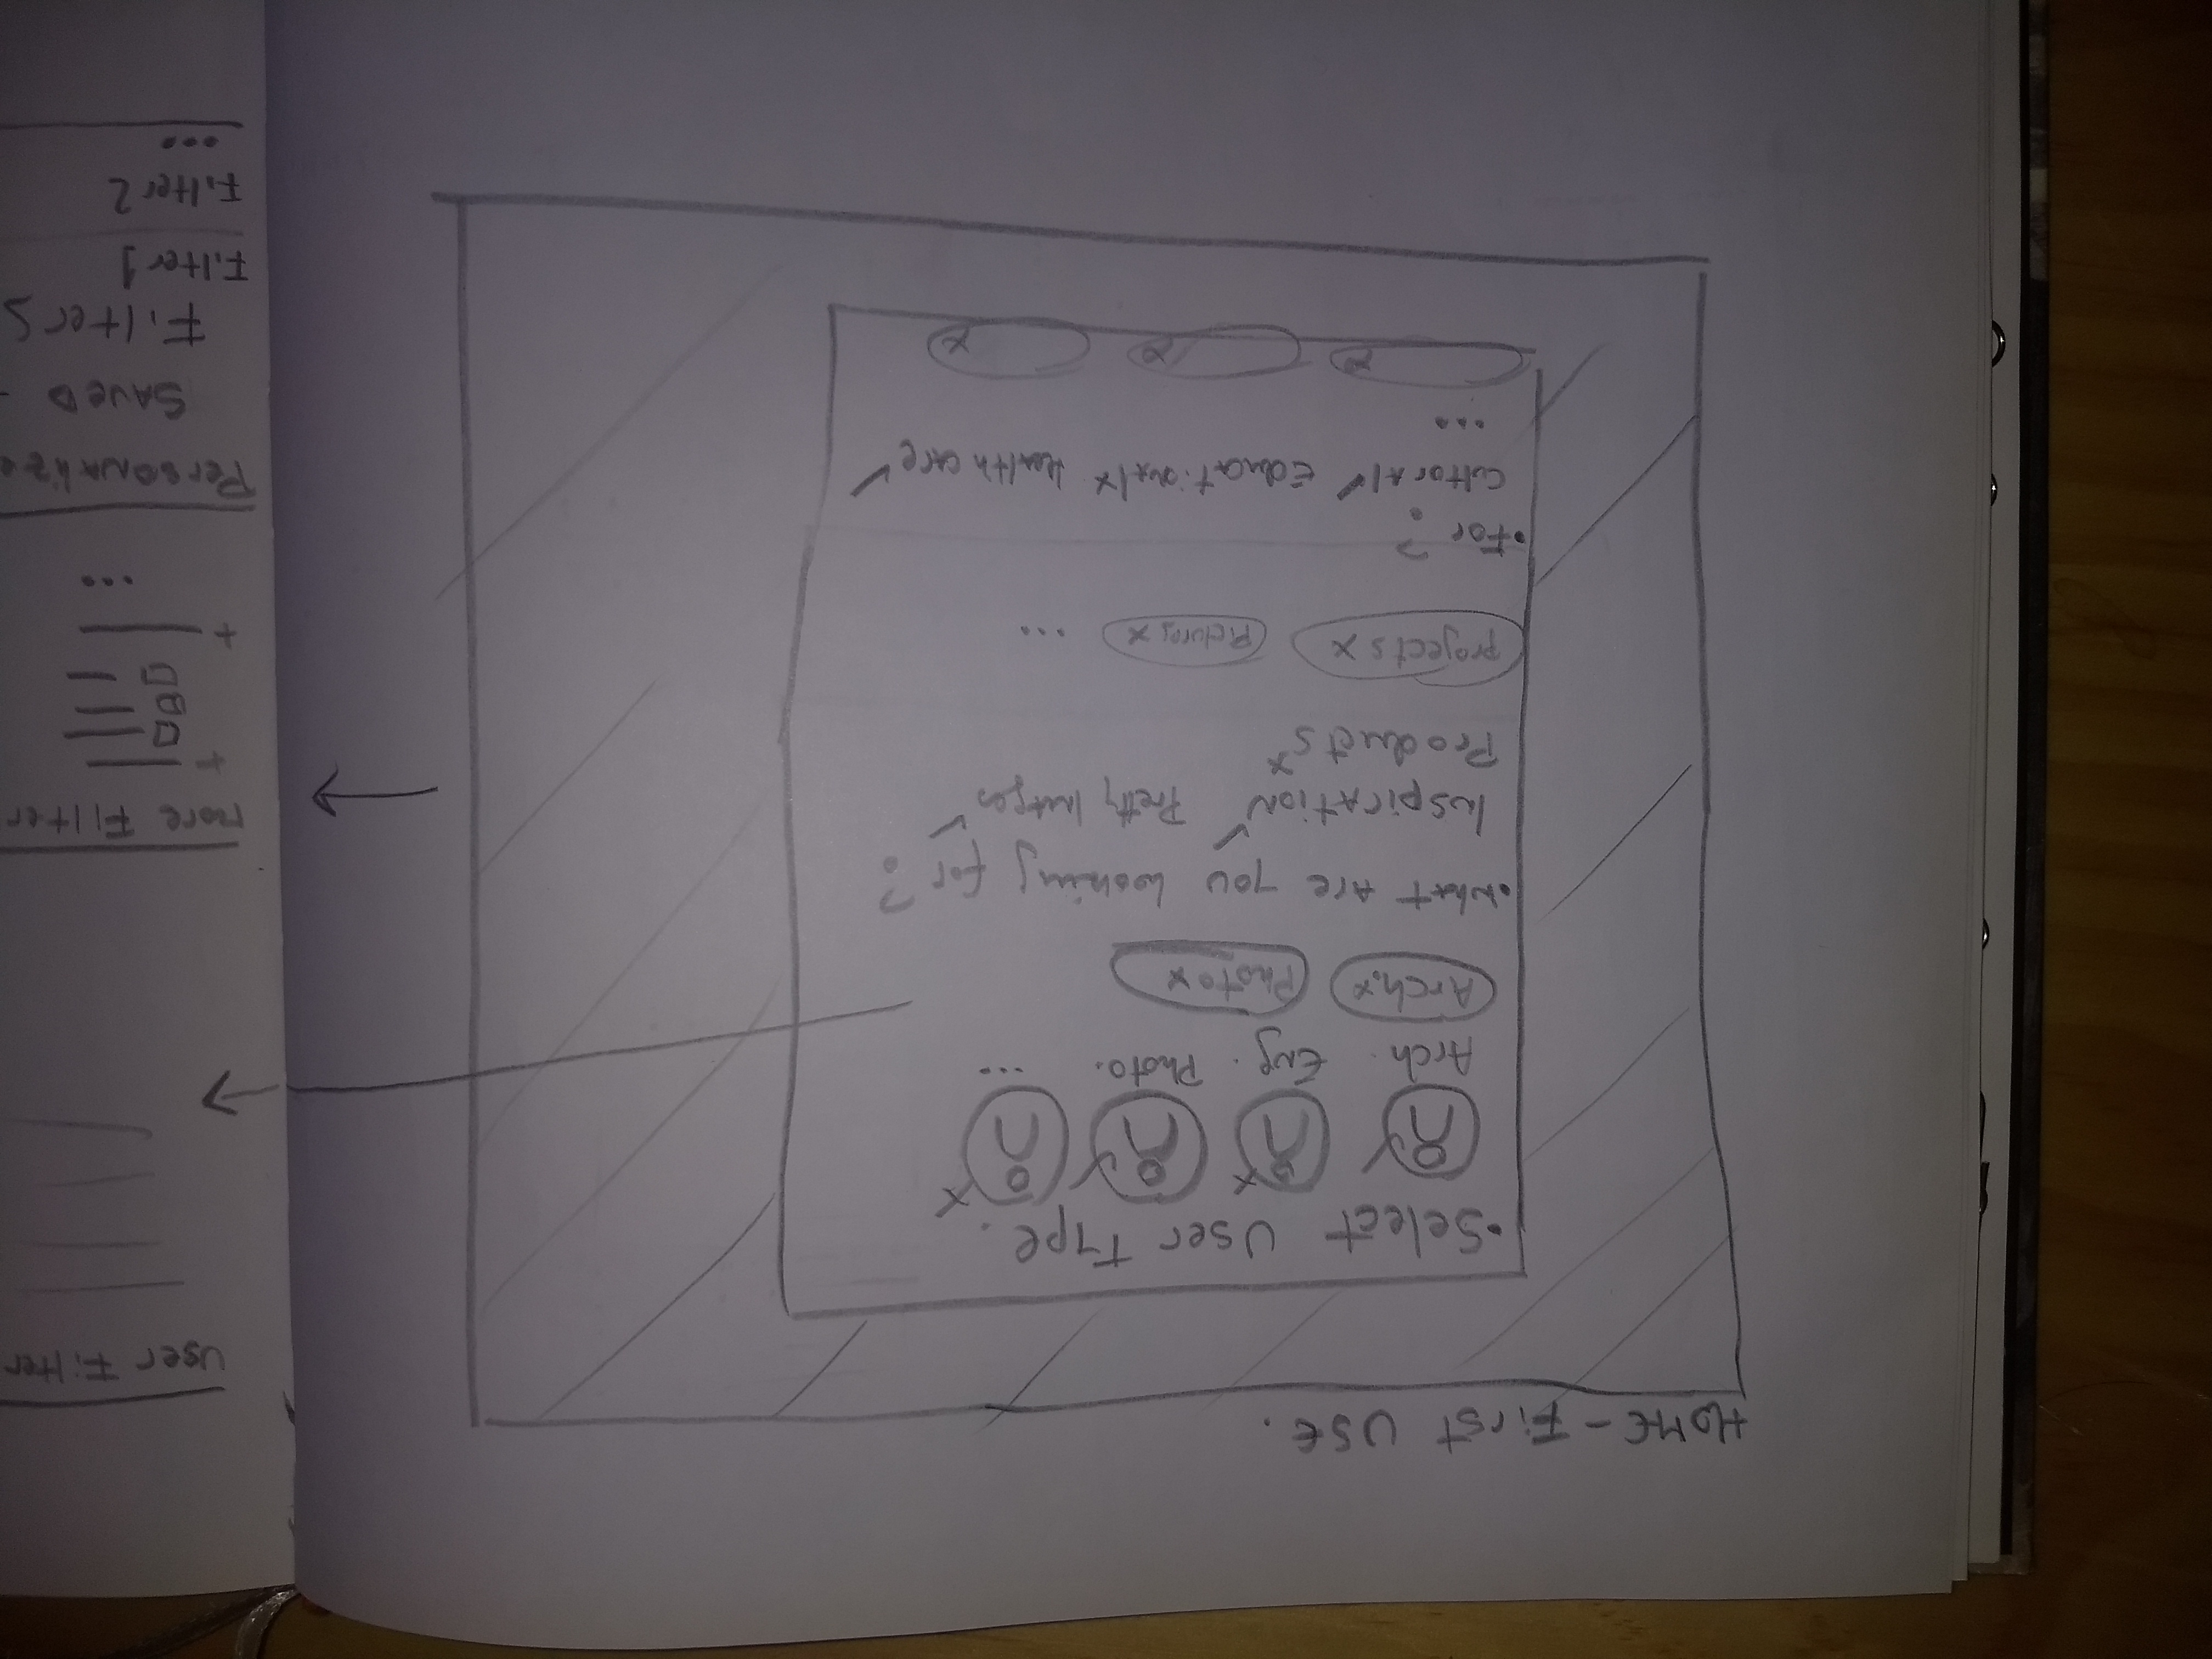 HOME - First USE.
• Select User Type.
Arch. Eng. Photo. ...
Arch. x Photo x
• What Are you Looking for?
Inspiration ✓ Pretty Images ✓
Products x
projects x Pictures x ...
• For?
CultorAl ✓ Educational x Healthcare ✓
...
x x x
User Filter
more Filter
+
+
...
Personalize
SAVED
Filters
Filter 1
Filter 2
...